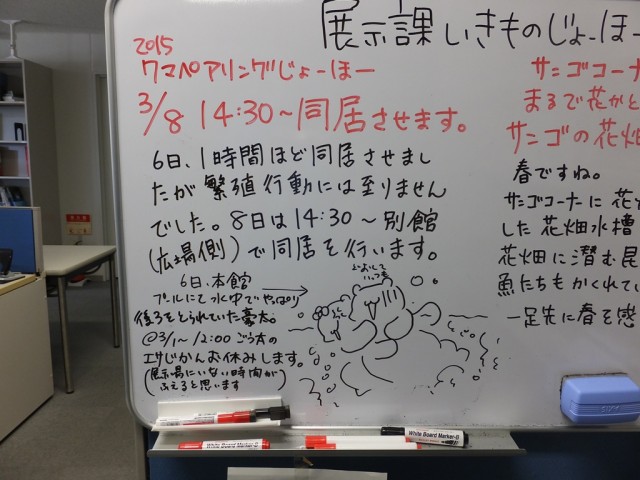 展示課 いきものじょーほー
2015
クマペアリングじょーほー
3/8 14:30～同居させます。
6日、1時間ほど同居させまし
たが繁殖行動には至りません
でした。8日は14:30～別館
(広場側)で同居を行います。
6日、本館
プールにて水中でやっぱり
後ろをとられていた豪太。
@3/1～ 12:00 ごう太の
エサじかんお休みします。
(展示場にいない時間が
ふえると思います)
サンゴコーナ
まるで花かと
サンゴの花畑
春ですね。
サンゴコーナーに花
した花畑水槽
花畑に潜む昆
魚たちもかくれてい
一足先に春を感
White Board Marker-D
White Board Marker-D